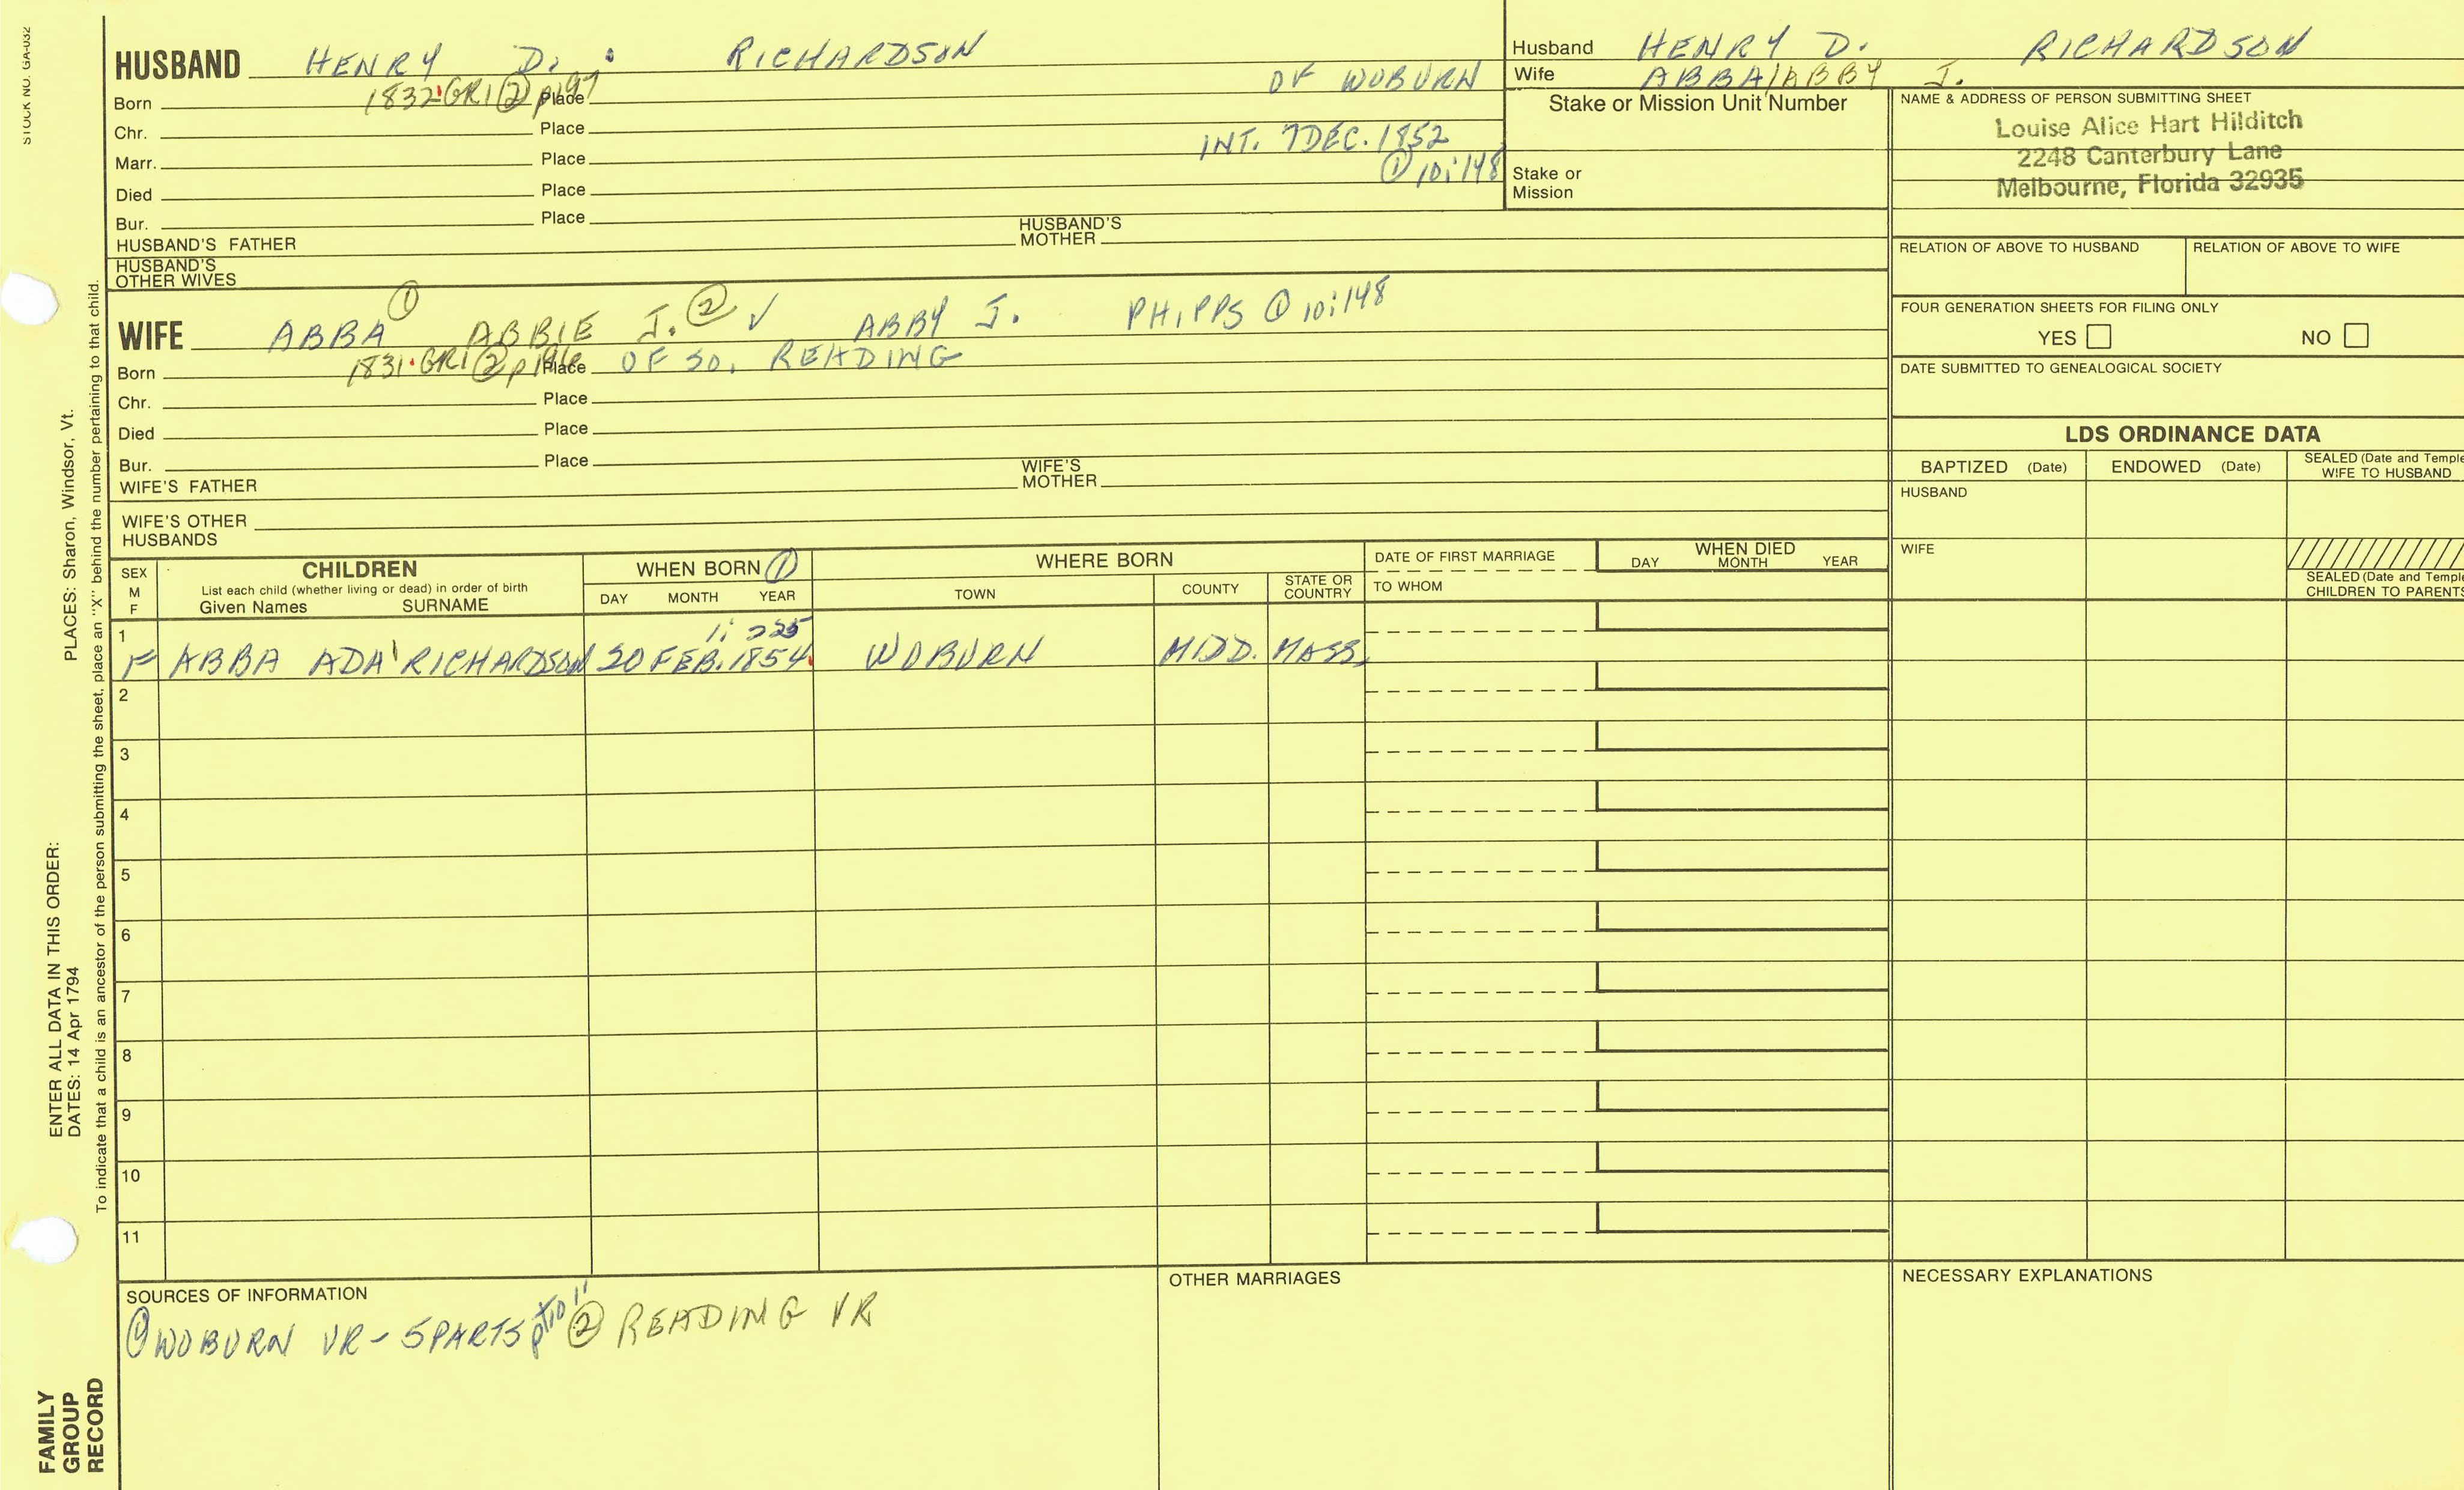 STOCK NO. GA-032
HUSBAND HENRY D. RICHARDSON
OF WOBURN
Born 1832 GR1 ② p197 Place
Chr. Place
INT. 7 DEC. 1852
Marr. Place
① 10:148
Died Place
Bur. Place
HUSBAND'S FATHER HUSBAND'S MOTHER
HUSBAND'S OTHER WIVES
WIFE ABBA ① ABBIE J. ② ✓ ABBY J. PHIPPS ① 10:148
Born 1831 GR1 ② p196 Place OF SO. READING
Chr. Place
Died Place
Bur. Place
WIFE'S FATHER WIFE'S MOTHER
WIFE'S OTHER HUSBANDS
Husband HENRY D. RICHARDSON
Wife ABBA/ABBY J.
Stake or Mission Unit Number
Stake or Mission
NAME & ADDRESS OF PERSON SUBMITTING SHEET
Louise Alice Hart Hilditch
2248 Canterbury Lane
Melbourne, Florida 32935
RELATION OF ABOVE TO HUSBAND RELATION OF ABOVE TO WIFE
FOUR GENERATION SHEETS FOR FILING ONLY
YES NO
DATE SUBMITTED TO GENEALOGICAL SOCIETY
LDS ORDINANCE DATA
BAPTIZED (Date) ENDOWED (Date) SEALED (Date and Temple
WIFE TO HUSBAND
HUSBAND
WIFE
SEALED (Date and Temple
CHILDREN TO PARENTS
SEX M F
CHILDREN
List each child (whether living or dead) in order of birth
Given Names SURNAME
WHEN BORN ①
DAY MONTH YEAR
WHERE BORN
TOWN COUNTY STATE OR COUNTRY
DATE OF FIRST MARRIAGE
TO WHOM
WHEN DIED
DAY MONTH YEAR
1 1:225
F ABBA ADA RICHARDSON 20 FEB. 1854 WOBURN MIDD. MASS.
2
3
4
5
6
7
8
9
10
11
SOURCES OF INFORMATION
① WOBURN VR - 5 PARTS ② READING VR
OTHER MARRIAGES
NECESSARY EXPLANATIONS
PLACES: Sharon, Windsor, Vt.
To indicate that a child is an ancestor of the person submitting the sheet, place an "X" behind the number pertaining to that child.
ENTER ALL DATA IN THIS ORDER:
DATES: 14 Apr 1794
FAMILY
GROUP
RECORD